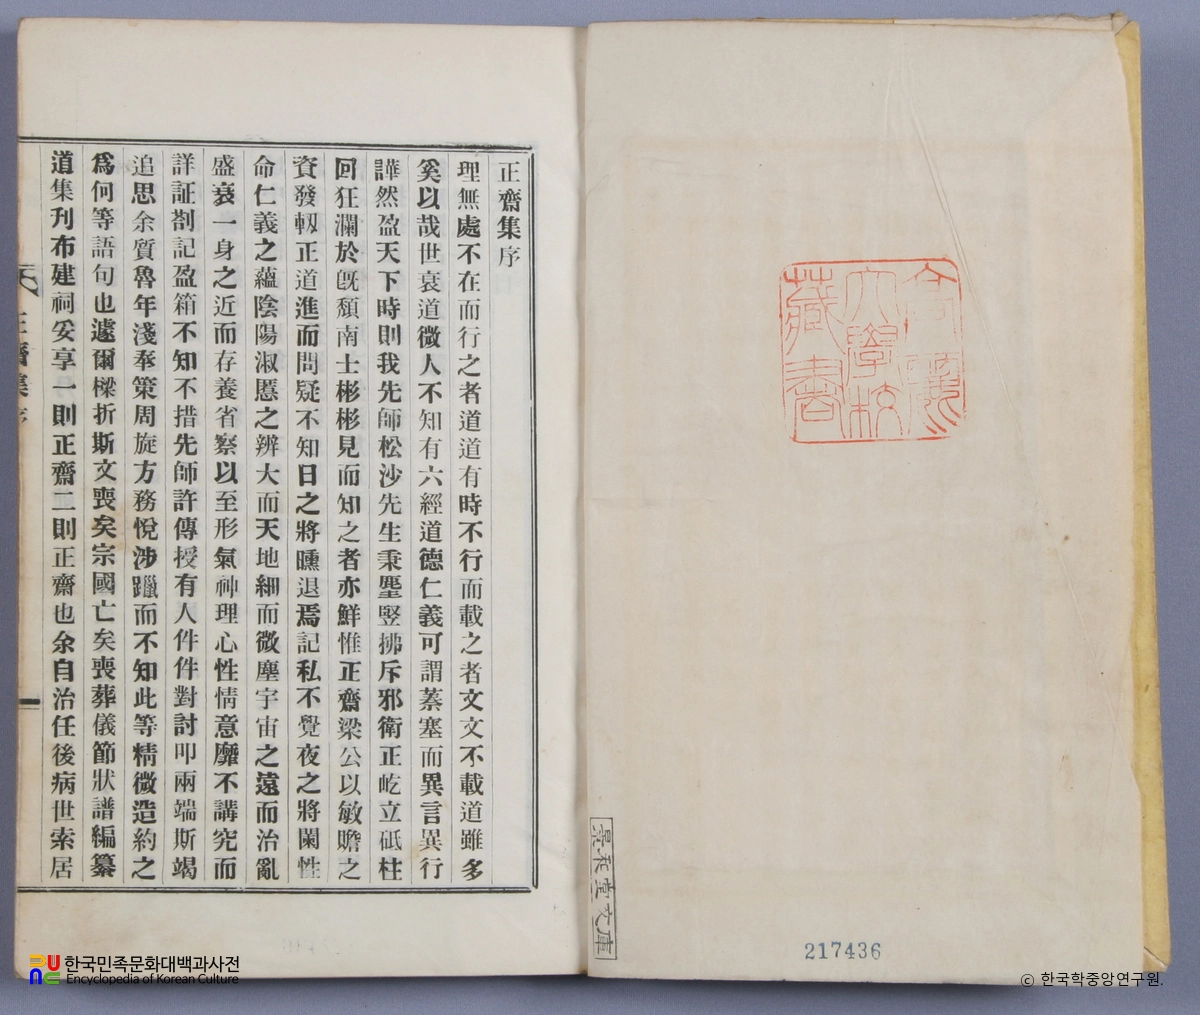 高麗
大學校
藏書
景和堂文庫
217436
正齋集序
理無處不在而行之者道道有時不行而載之者文文不載道雖多
奚以哉世衰道微人不知有六經道德仁義可謂蓁塞而異言異行
譁然盈天下時則我先師松沙先生秉麈竪拂斥邪衛正屹立砥柱
回狂瀾於旣頹南士彬彬見而知之者亦鮮惟正齋梁公以敏贍之
資發軔正道進而問疑不知日之將曛退焉記私不覺夜之將闌性
命仁義之蘊陰陽淑慝之辨大而天地細而微塵宇宙之遠而治亂
盛衰一身之近而存養省察以至形氣神理心性情意靡不講究而
詳証劄記盈箱不知不措先師許傳授有人件件對討叩兩端斯竭
追思余質魯年淺奉策周旋方務悅涉躐而不知此等精微造約之
爲何等語句也遽爾樑折斯文喪矣宗國亡矣喪葬儀節狀譜編纂
道集刋布建祠妥享一則正齋二則正齋也余自治任後病世索居
正齋集序
한국민족문화대백과사전
Encyclopedia of Korean Culture
ⓒ 한국학중앙연구원.